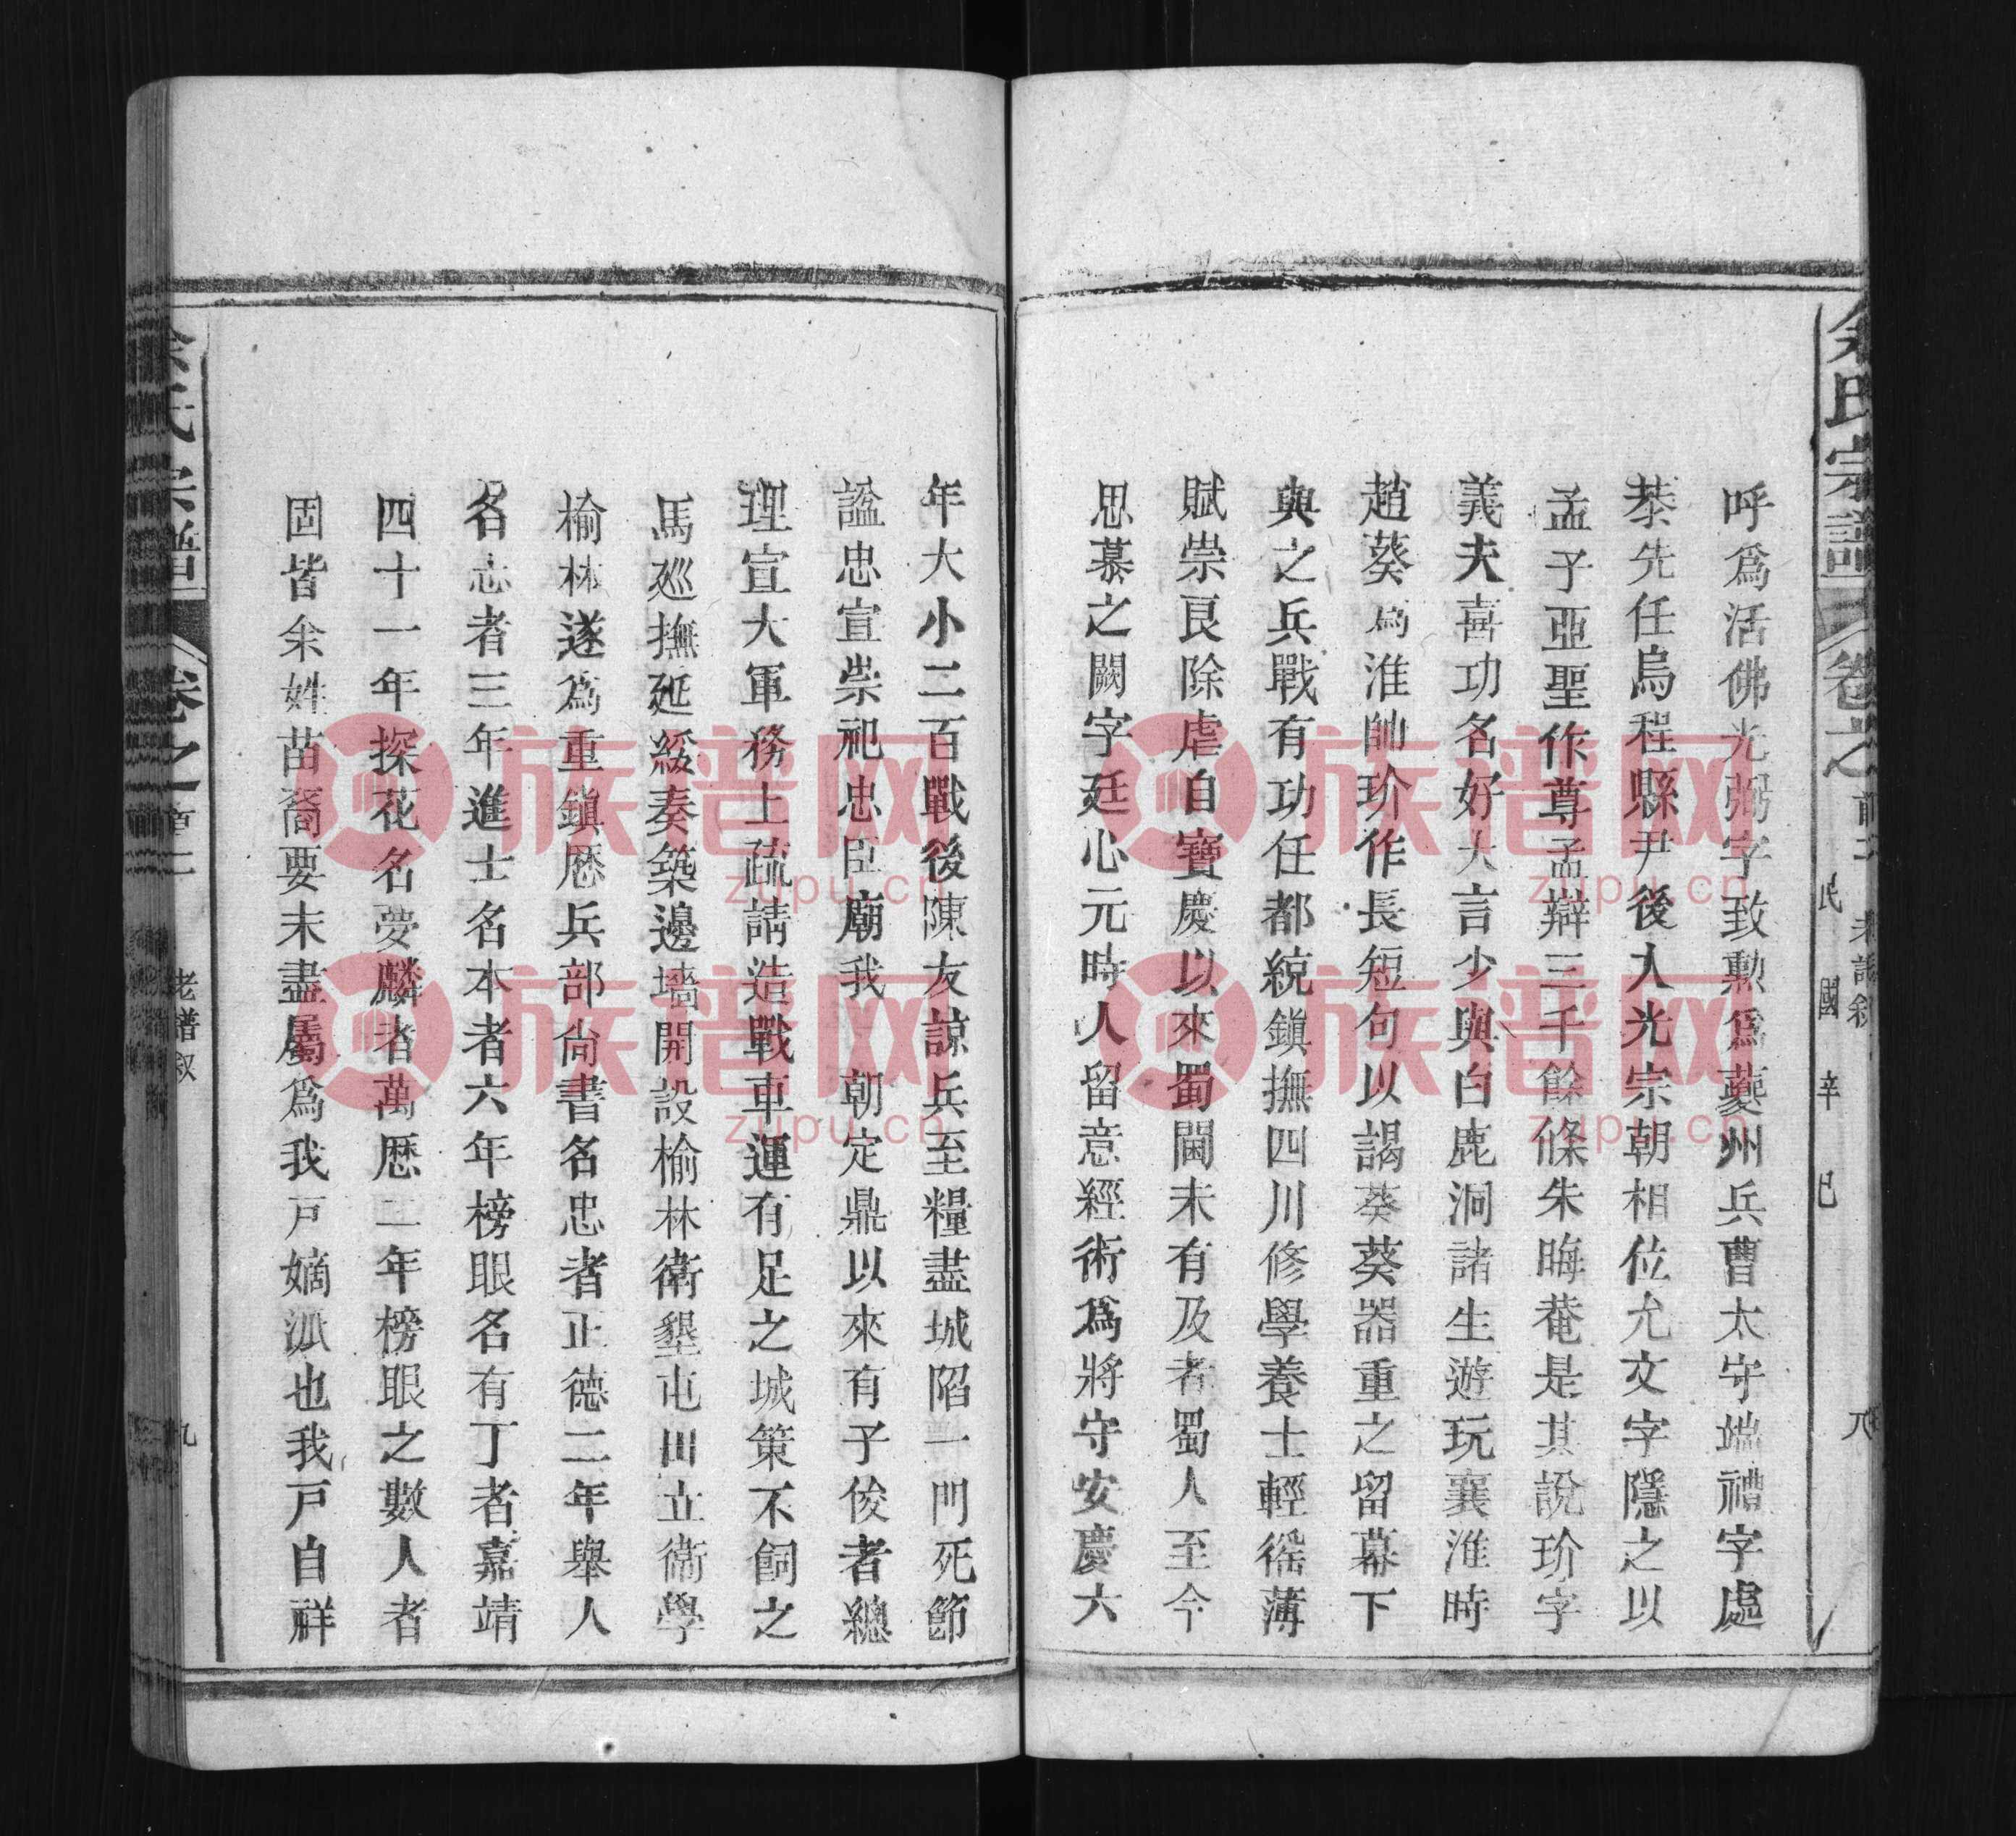 余氏宗譜
卷之
民國辛巳
八
呼爲活佛光弼字致勳爲夔州兵曹太守端禮字處
恭先任烏程縣尹後入光宗朝相位允文字隱之以
孟子亞聖作尊孟辯三千餘條朱晦菴是其說玠字
義夫喜功名好大言少與白鹿洞諸生遊玩襄淮時
趙葵爲淮帥玠作長短句以謁葵葵器重之留幕下
與之兵戰有功任都統鎮撫四川修學養士輕徭薄
賦崇良除虐自寶慶以來蜀閫未有及者蜀人至今
思慕之闕字廷心元時人留意經術爲將守安慶六
年大小二百戰後陳友諒兵至糧盡城陷一門死節
諡忠宣崇祀忠臣廟我 朝定鼎以來有子俊者總
理宣大軍務上疏請造戰車運有足之城策不飼之
馬廵撫延綏奏築邊墻開設榆林衛墾屯田立衛學
榆林遂爲重鎮厯兵部尙書名忠者正德二年舉人
名志者三年進士名本者六年榜眼名有丁者嘉靖
四十一年探花名夢麟者萬厯二年榜眼之數人者
固皆余姓苗裔要未盡屬爲我戸嫡泒也我戸自祥
余氏宗譜
卷之首二
老譜叙
九
族谱网
zupu.cn
族谱网
zupu.cn
族谱网
zupu.cn
族谱网
zupu.cn